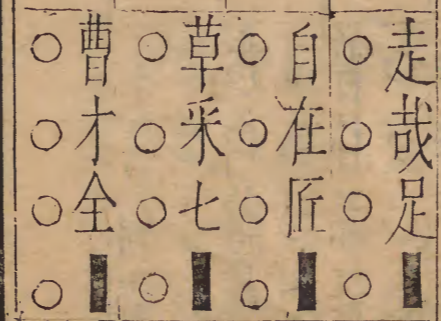 走哉足■
○○○○
自在匠■
○○○○
草采七■
○○○○
曹才全■
○○○○